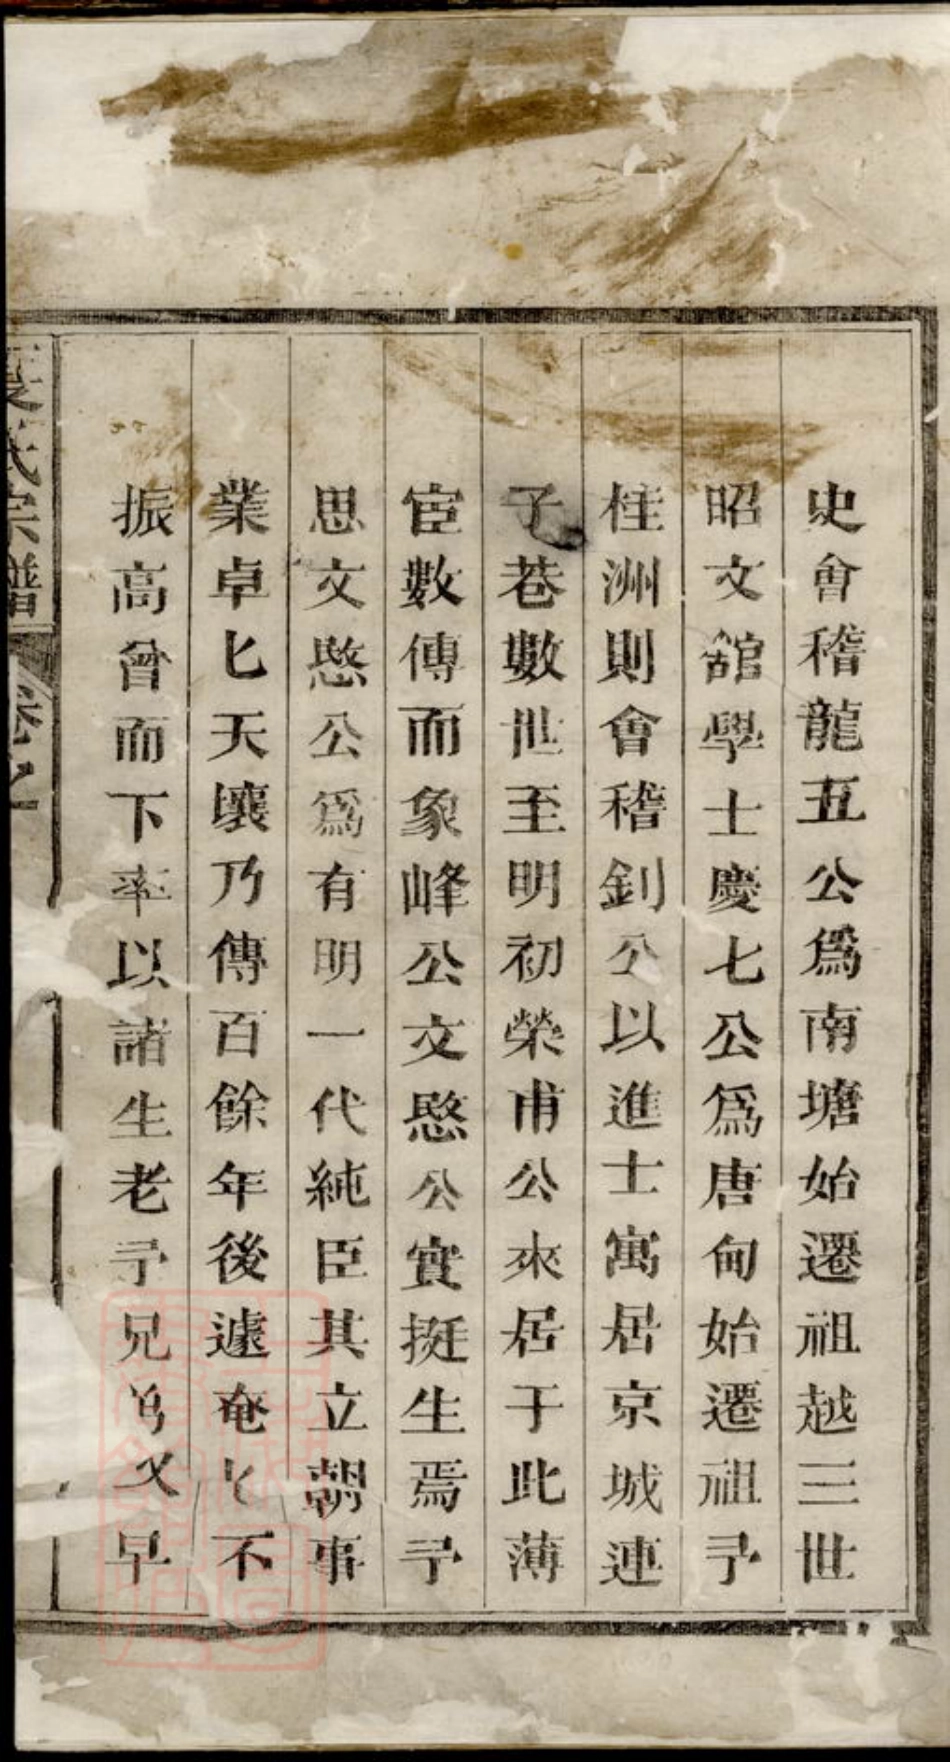 史會稽龍五公爲南塘始遷祖越三世
昭文舘學士慶七公爲唐甸始遷祖予
桂洲則會稽釗公以進士寓居京城連
子巷數世至明初榮甫公來居于此薄
宦數傳而象峰公文愍公實挺生焉予
思文愍公爲有明一代純臣其立朝事
業卓匕天壤乃傳百餘年後遽奄匕不
振高曾而下率以諸生老予兄 又早
氏宗譜
卷之